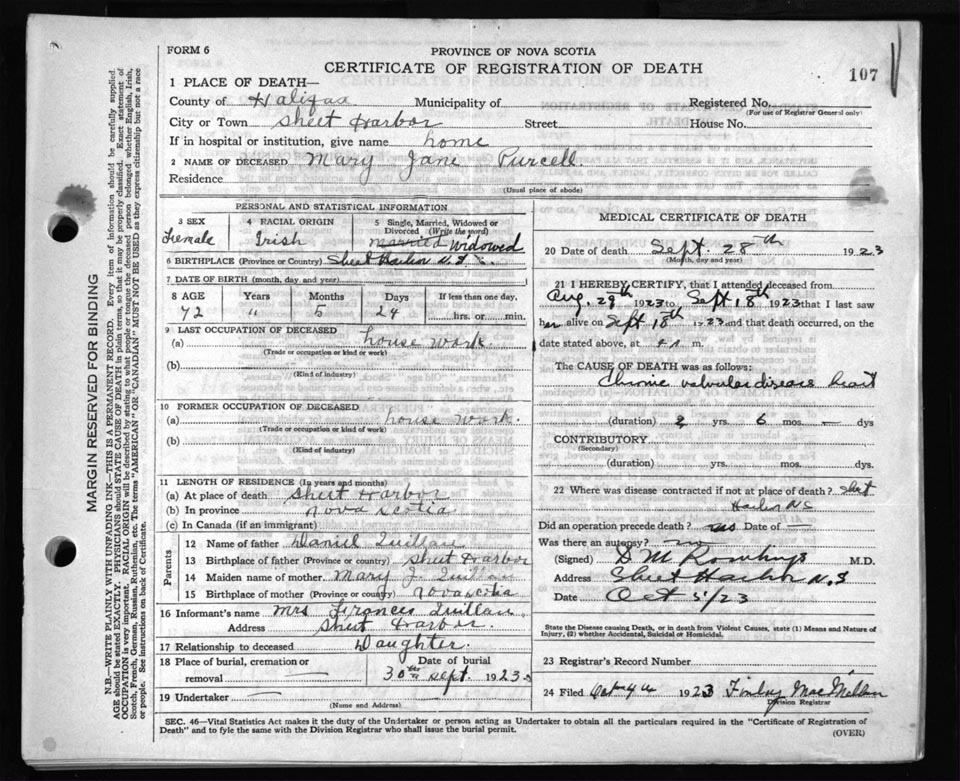 FORM 6
PROVINCE OF NOVA SCOTIA
CERTIFICATE OF REGISTRATION OF DEATH
107
1 PLACE OF DEATH—
County of Halifax Municipality of Registered No.
(For use of Registrar General only)
City or Town Sheet Harbor Street House No.
If in hospital or institution, give name home
2 NAME OF DECEASED Mary Jane Purcell.
Residence
(Usual place of abode)
PERSONAL AND STATISTICAL INFORMATION
3 SEX 4 RACIAL ORIGIN 5 Single, Married, Widowed or Divorced (Write the word)
Female Irish married Widowed
6 BIRTHPLACE (Province or Country) Sheet Harbor N.S
7 DATE OF BIRTH (month, day and year)
8 AGE Years Months Days If less than one day,
72 " 5 24 hrs. or min.
9 LAST OCCUPATION OF DECEASED
(a) house work
(Trade or occupation or kind or work)
(b)
(Kind of industry)
10 FORMER OCCUPATION OF DECEASED
(a) house work.
(Trade or occupation or kind of work)
(b)
(Kind of industry)
11 LENGTH OF RESIDENCE (In years and months)
(a) At place of death Sheet Harbor
(b) In province Nova Scotia
(c) In Canada (if an immigrant)
Parents
12 Name of father Daniel Quillan
13 Birthplace of father (Province or country) Sheet Harbor
14 Maiden name of mother Mary J. Quillan
15 Birthplace of mother (Province or country) Nova Scotia
16 Informant's name Mrs Frances Quillan
Address Sheet Harbor.
17 Relationship to deceased Daughter.
18 Place of burial, cremation or removal — Date of burial
30th Sept. 1923
19 Undertaker —
(Name and Address)
MEDICAL CERTIFICATE OF DEATH
20 Date of death Sept. 28th 1923
(Month, day and year)
21 I HEREBY CERTIFY, that I attended deceased from
Aug. 29th 1923 to Sept 18th 1923 that I last saw
her alive on Sept 18th 1923 and that death occurred, on
date stated above, at m.
The CAUSE OF DEATH was as follows:
Chronic valvular disease heart
(duration) 2 yrs. 6 mos. — dys
CONTRIBUTORY
(Secondary)
(duration) yrs. mos. dys.
22 Where was disease contracted if not at place of death? Sheet
Harbor NS
Did an operation precede death? no Date of —
Was there an autopsy? no
(Signed) D M Rowlings M.D.
Address Sheet Harbor N.S
Date Oct 5/23
State the Disease causing Death, or in death from Violent Causes, state (1) Means and Nature of
Injury, (2) whether Accidental, Suicidal or Homicidal.
23 Registrar's Record Number
24 Filed Oct 4th 1923 Finlay MacMillan
Division Registrar
SEC. 46—Vital Statistics Act makes it the duty of the Undertaker or person acting as Undertaker to obtain all the particulars required in the "Certificate of Registration of
Death" and to fyle the same with the Division Registrar who shall issue the burial permit.
(OVER)
MARGIN RESERVED FOR BINDING
N.B.—WRITE PLAINLY WITH UNFADING INK—THIS IS A PERMANENT RECORD. Every item of information should be carefully supplied.
AGE should be stated EXACTLY. PHYSICIANS should STATE CAUSE OF DEATH in plain terms, so that it may be properly classified. Exact statement of
OCCUPATION is very important. RACIAL ORIGIN will be described by stating to what people or tongue the deceased person belonged whether English, Irish,
Scotch, French, German, Russian, Ruthenian, etc. The terms "AMERICAN" OR "CANADIAN" MUST NOT BE USED as they express citizenship but not a race
or people. See instructions on back of Certificate.